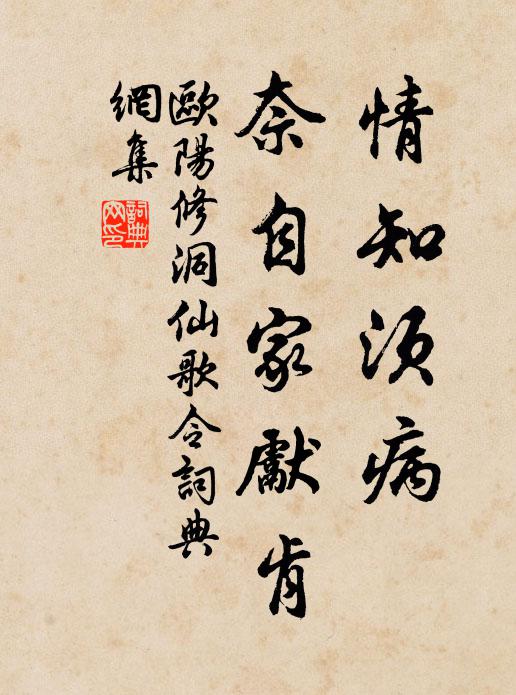 情知須病
奈自家獻肯
歐陽修洞仙歌令詞典
網集
詞典网印